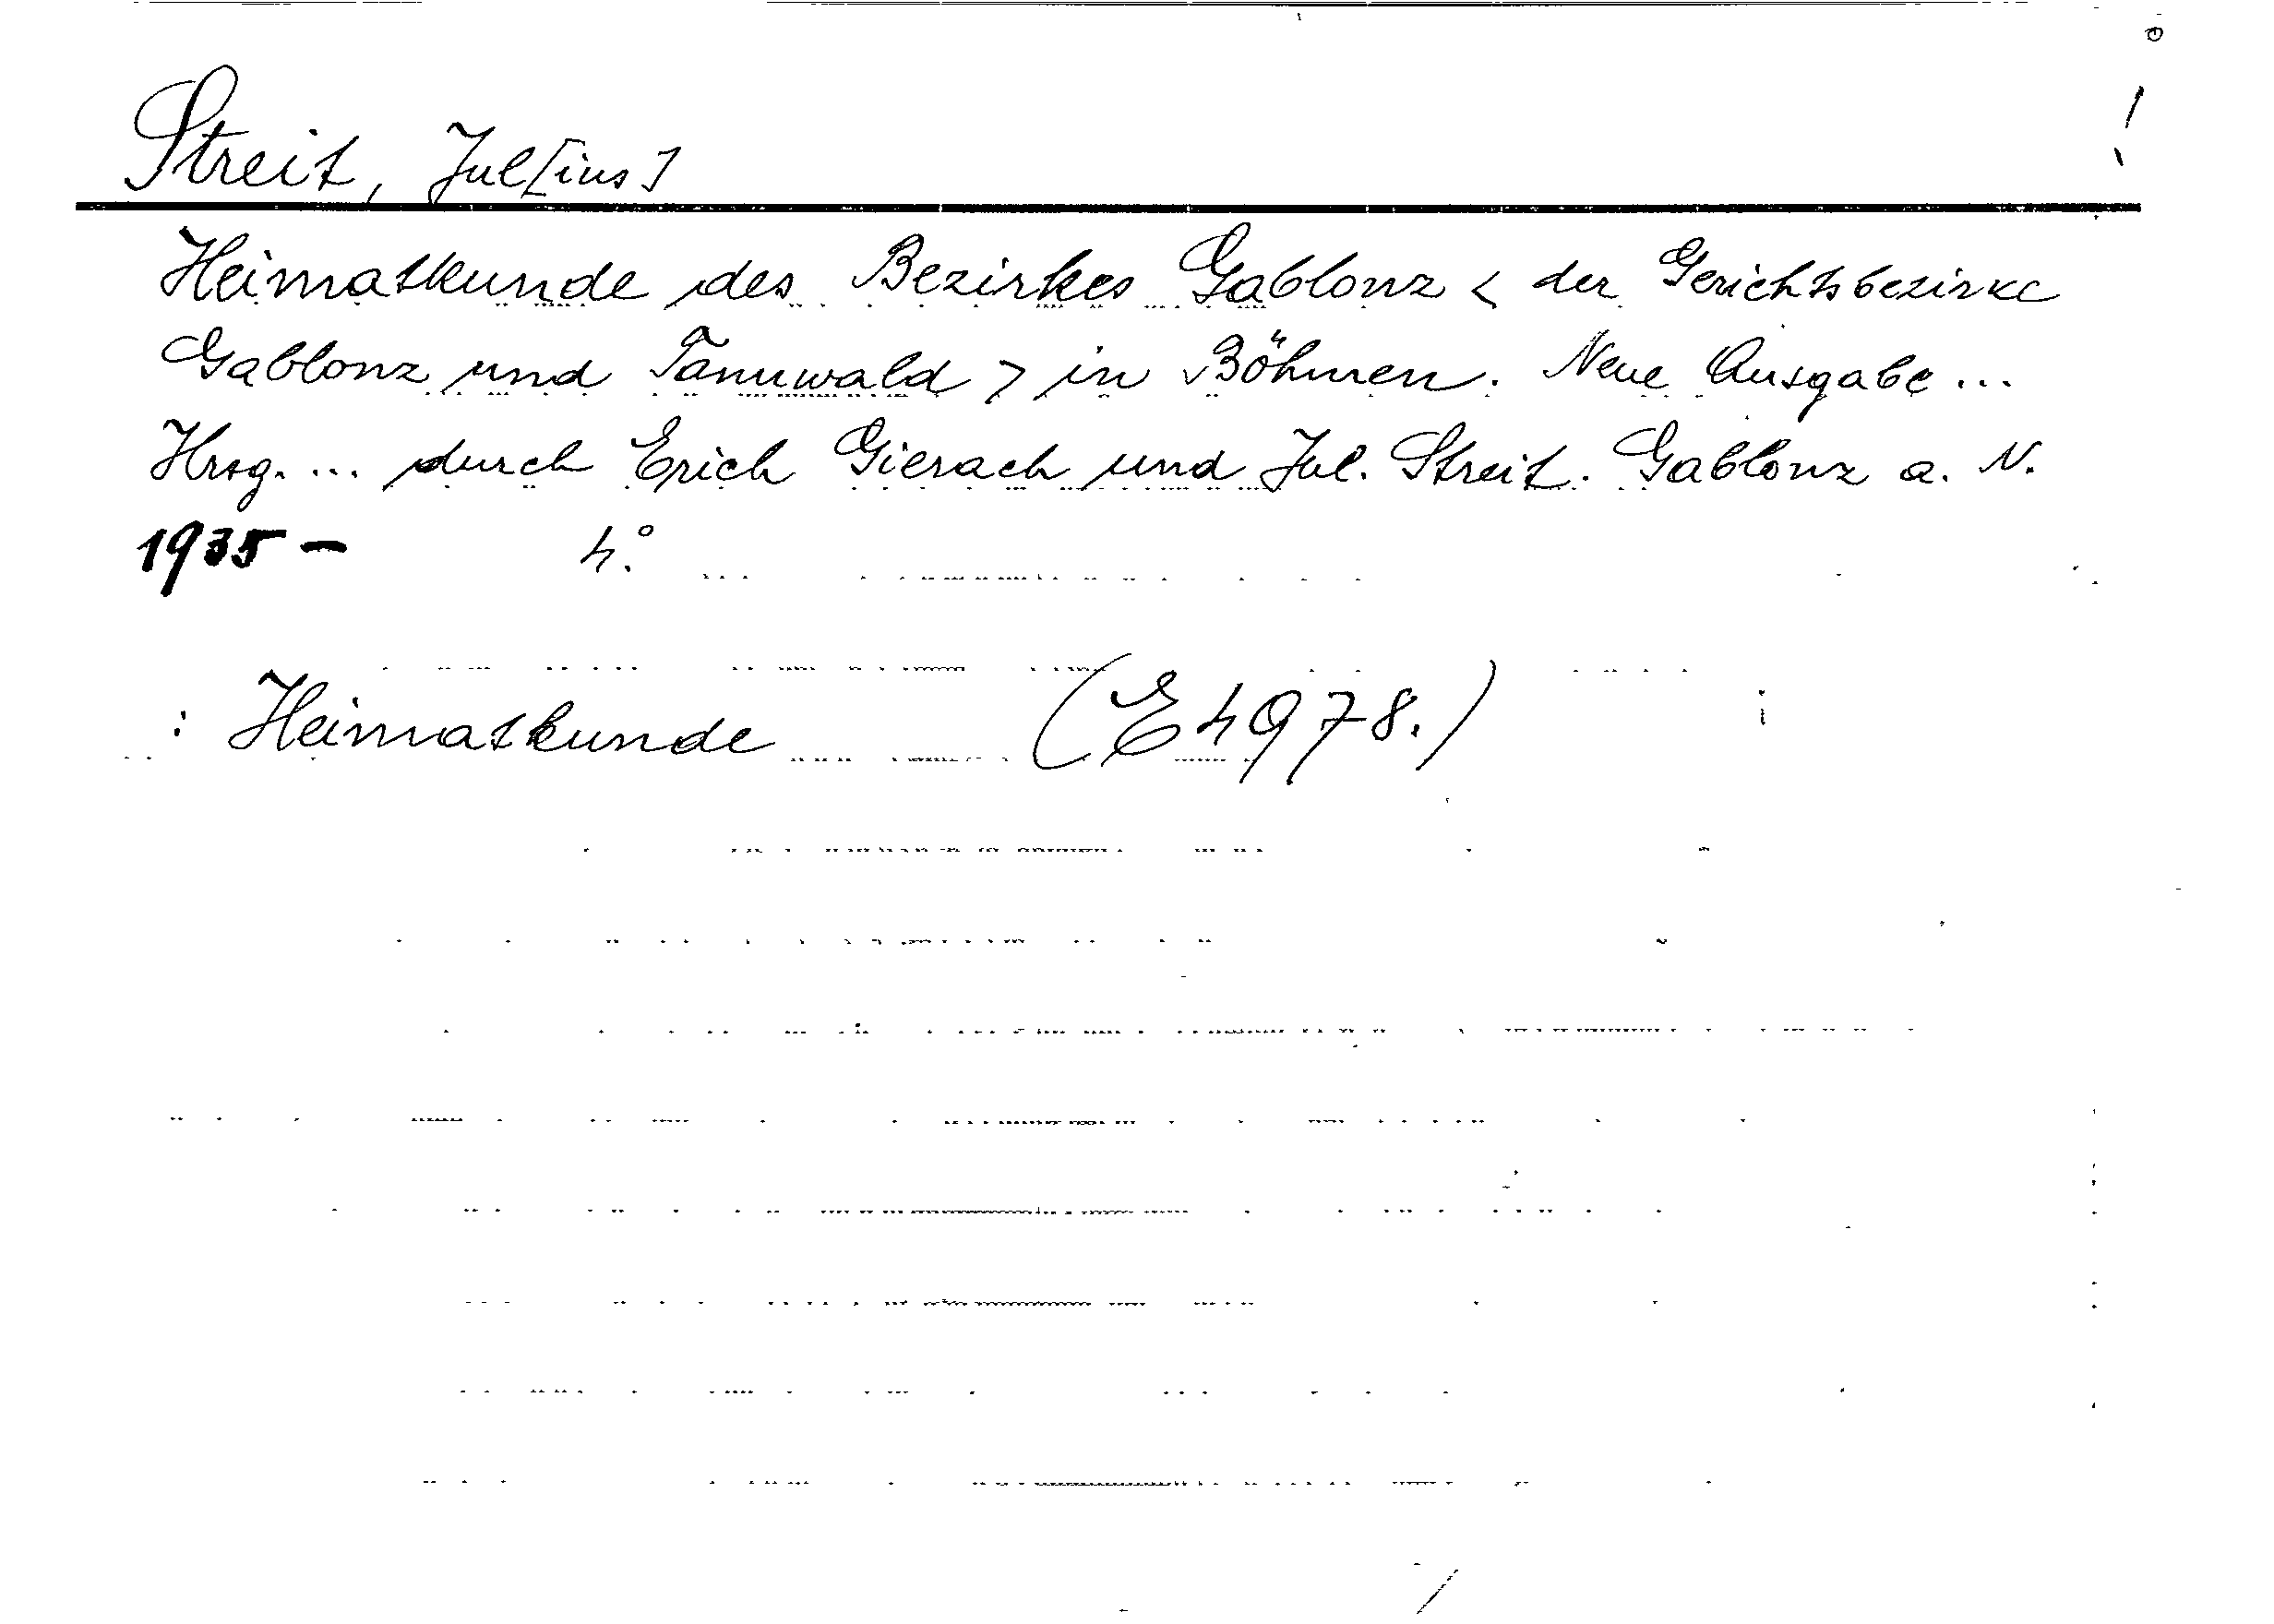 Streit, Jul[ius]
Heimatkunde des Bezirkes Gablonz < der Gerichtsbezirke
Gablonz und Tannwald > in Böhmen. Neue Ausgabe ...
Hrsg. ... durch Erich Gierach und Jul. Streit. Gablonz a. N.
1935 – 4.°
: Heimatkunde (E 4978.)